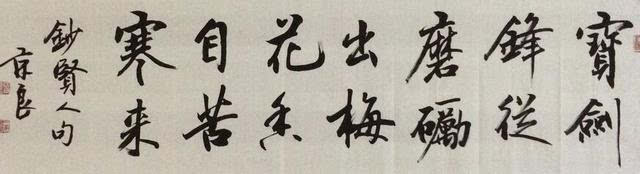 寶劍
鋒從
磨礪
出梅
花香
自苦
寒来
鈔賢人句
京良